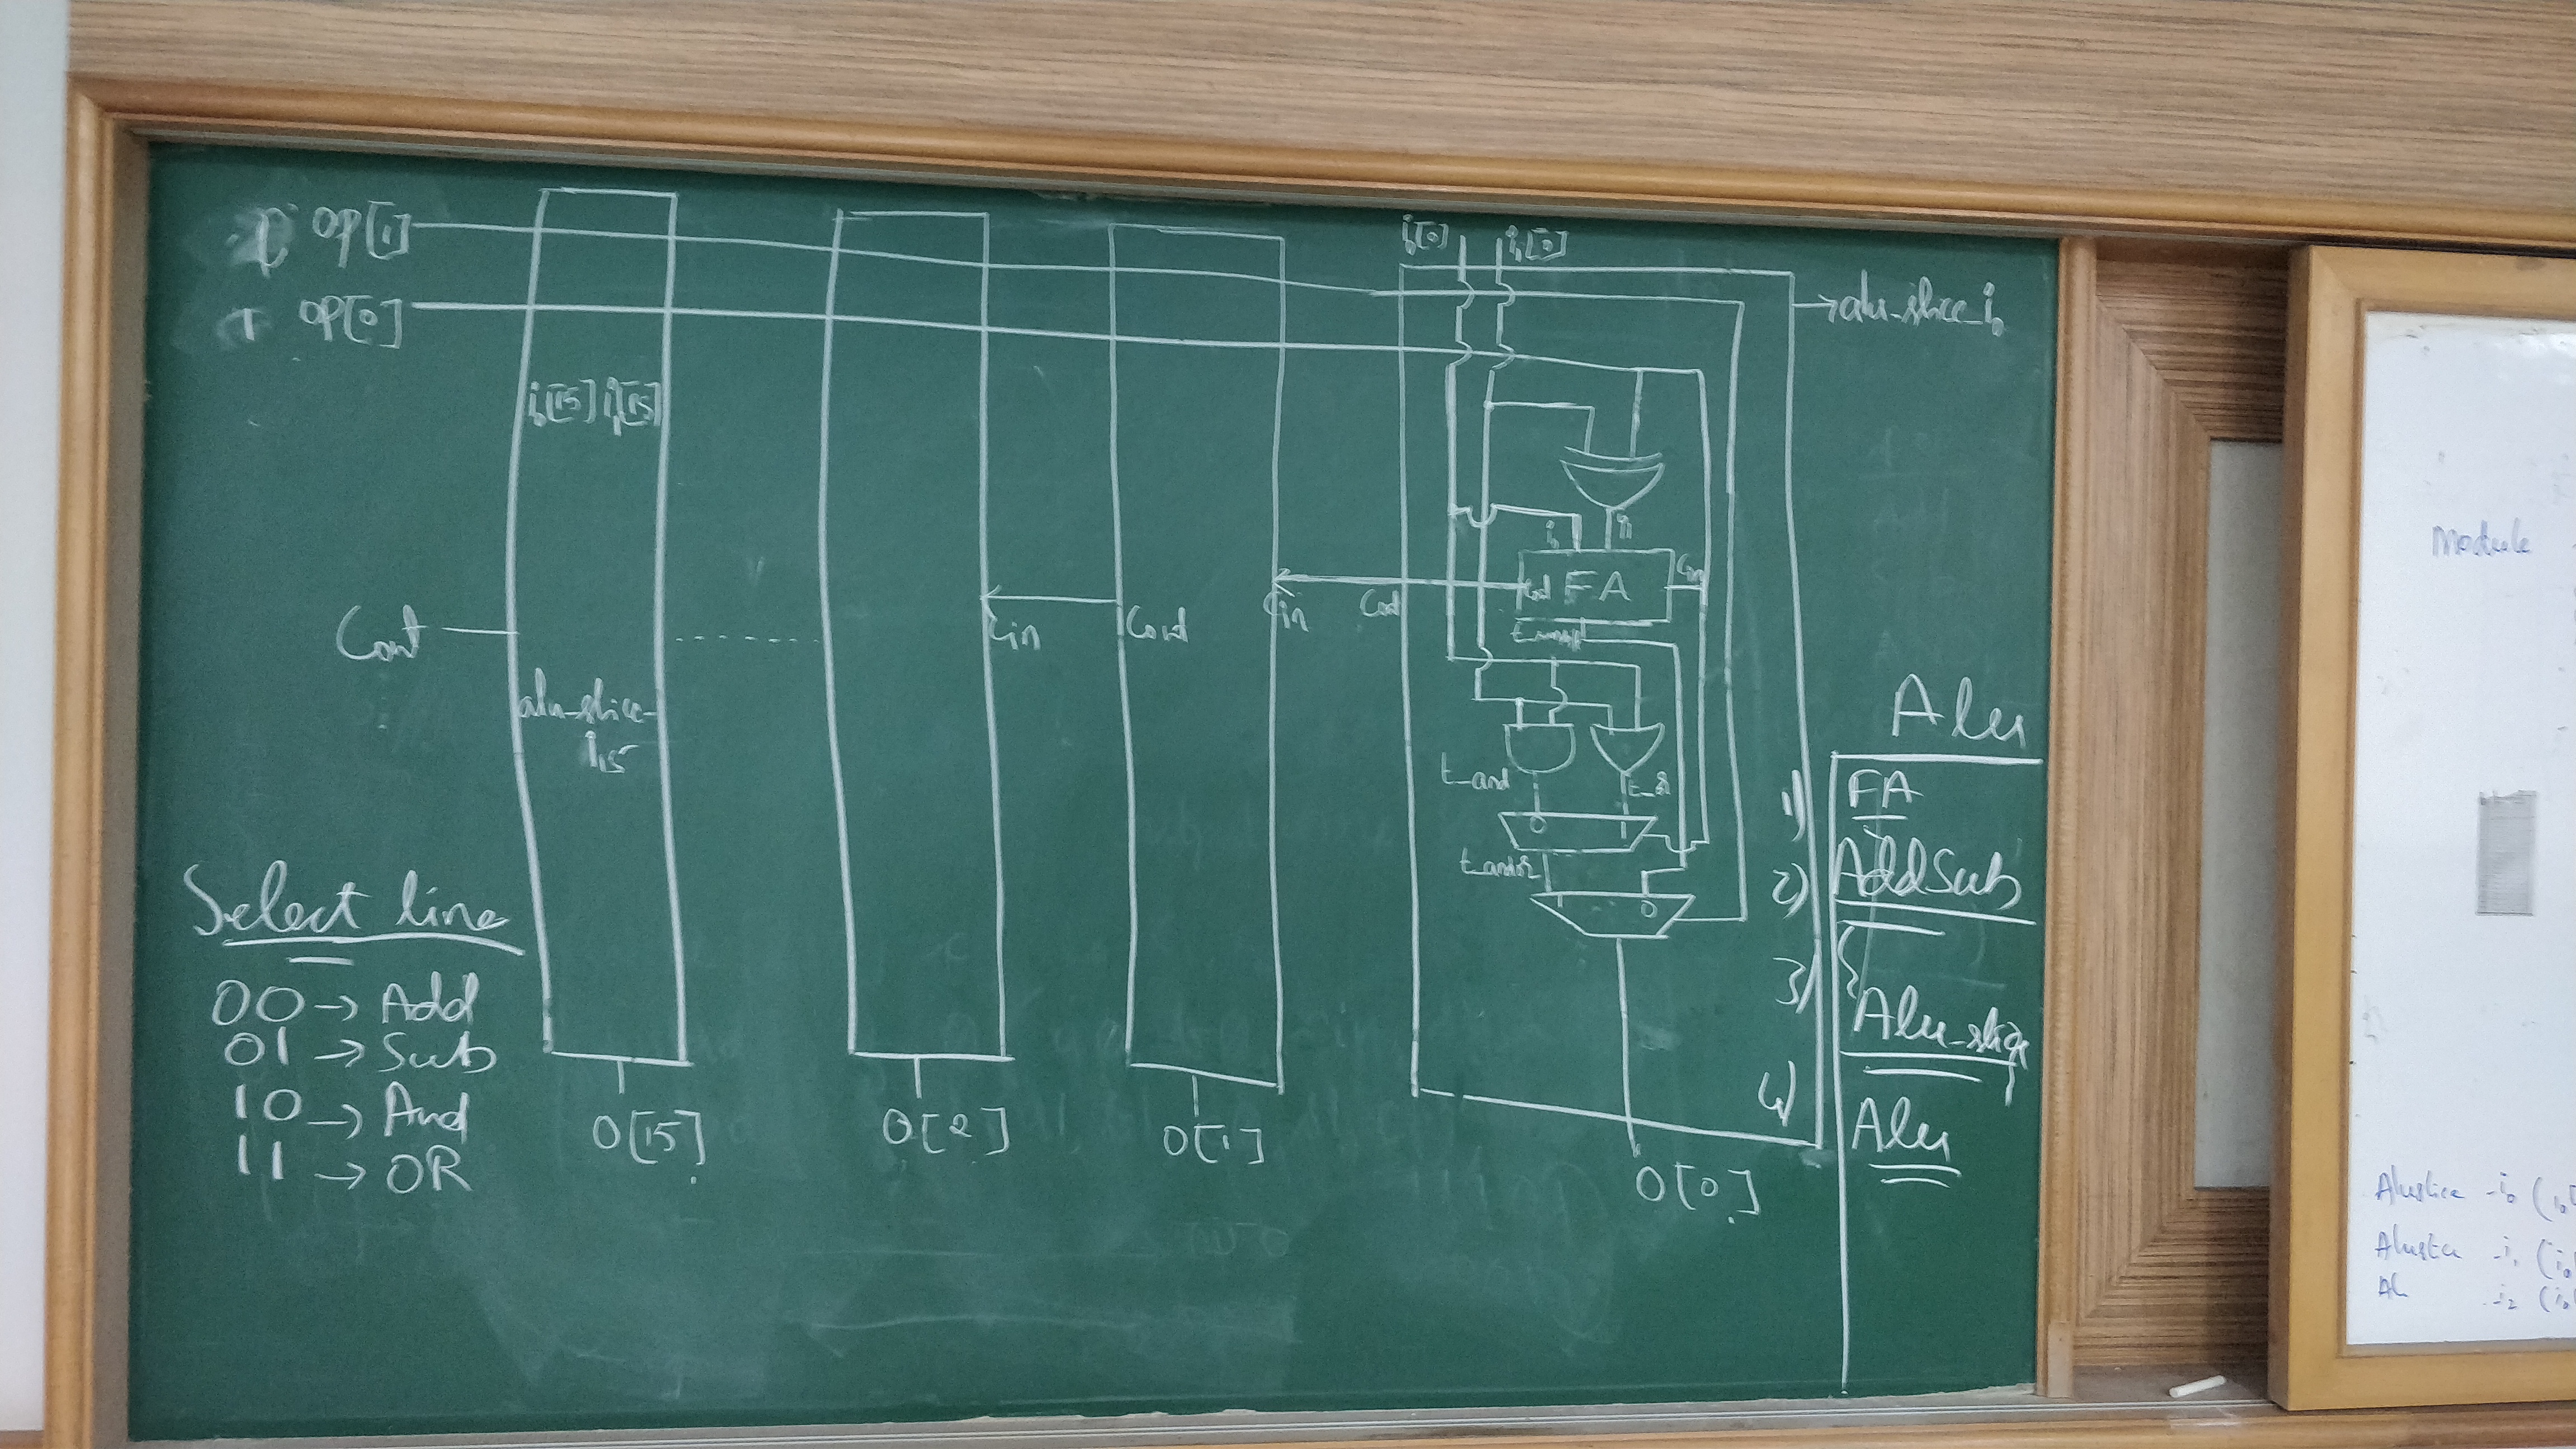 op[1]
op[0]
i0[15] i1[15]
Cout
alu-slice-
i15
Cin
Cout
Cin
Cout
i0[0] i1[0]
→alu-slice-i0
i0 i1
Cout FA Cin
t_and
t_andr
0
1
1 0
Select line
00 → Add
01 → Sub
10 → And
11 → OR
O[15]
O[2]
O[1]
O[0]
Alu
1) FA
2) AddSub
3) Alu_slice
4) Alu
Module
Aluslice -i0 (i0[
-i1 (i0
-i2 (i0